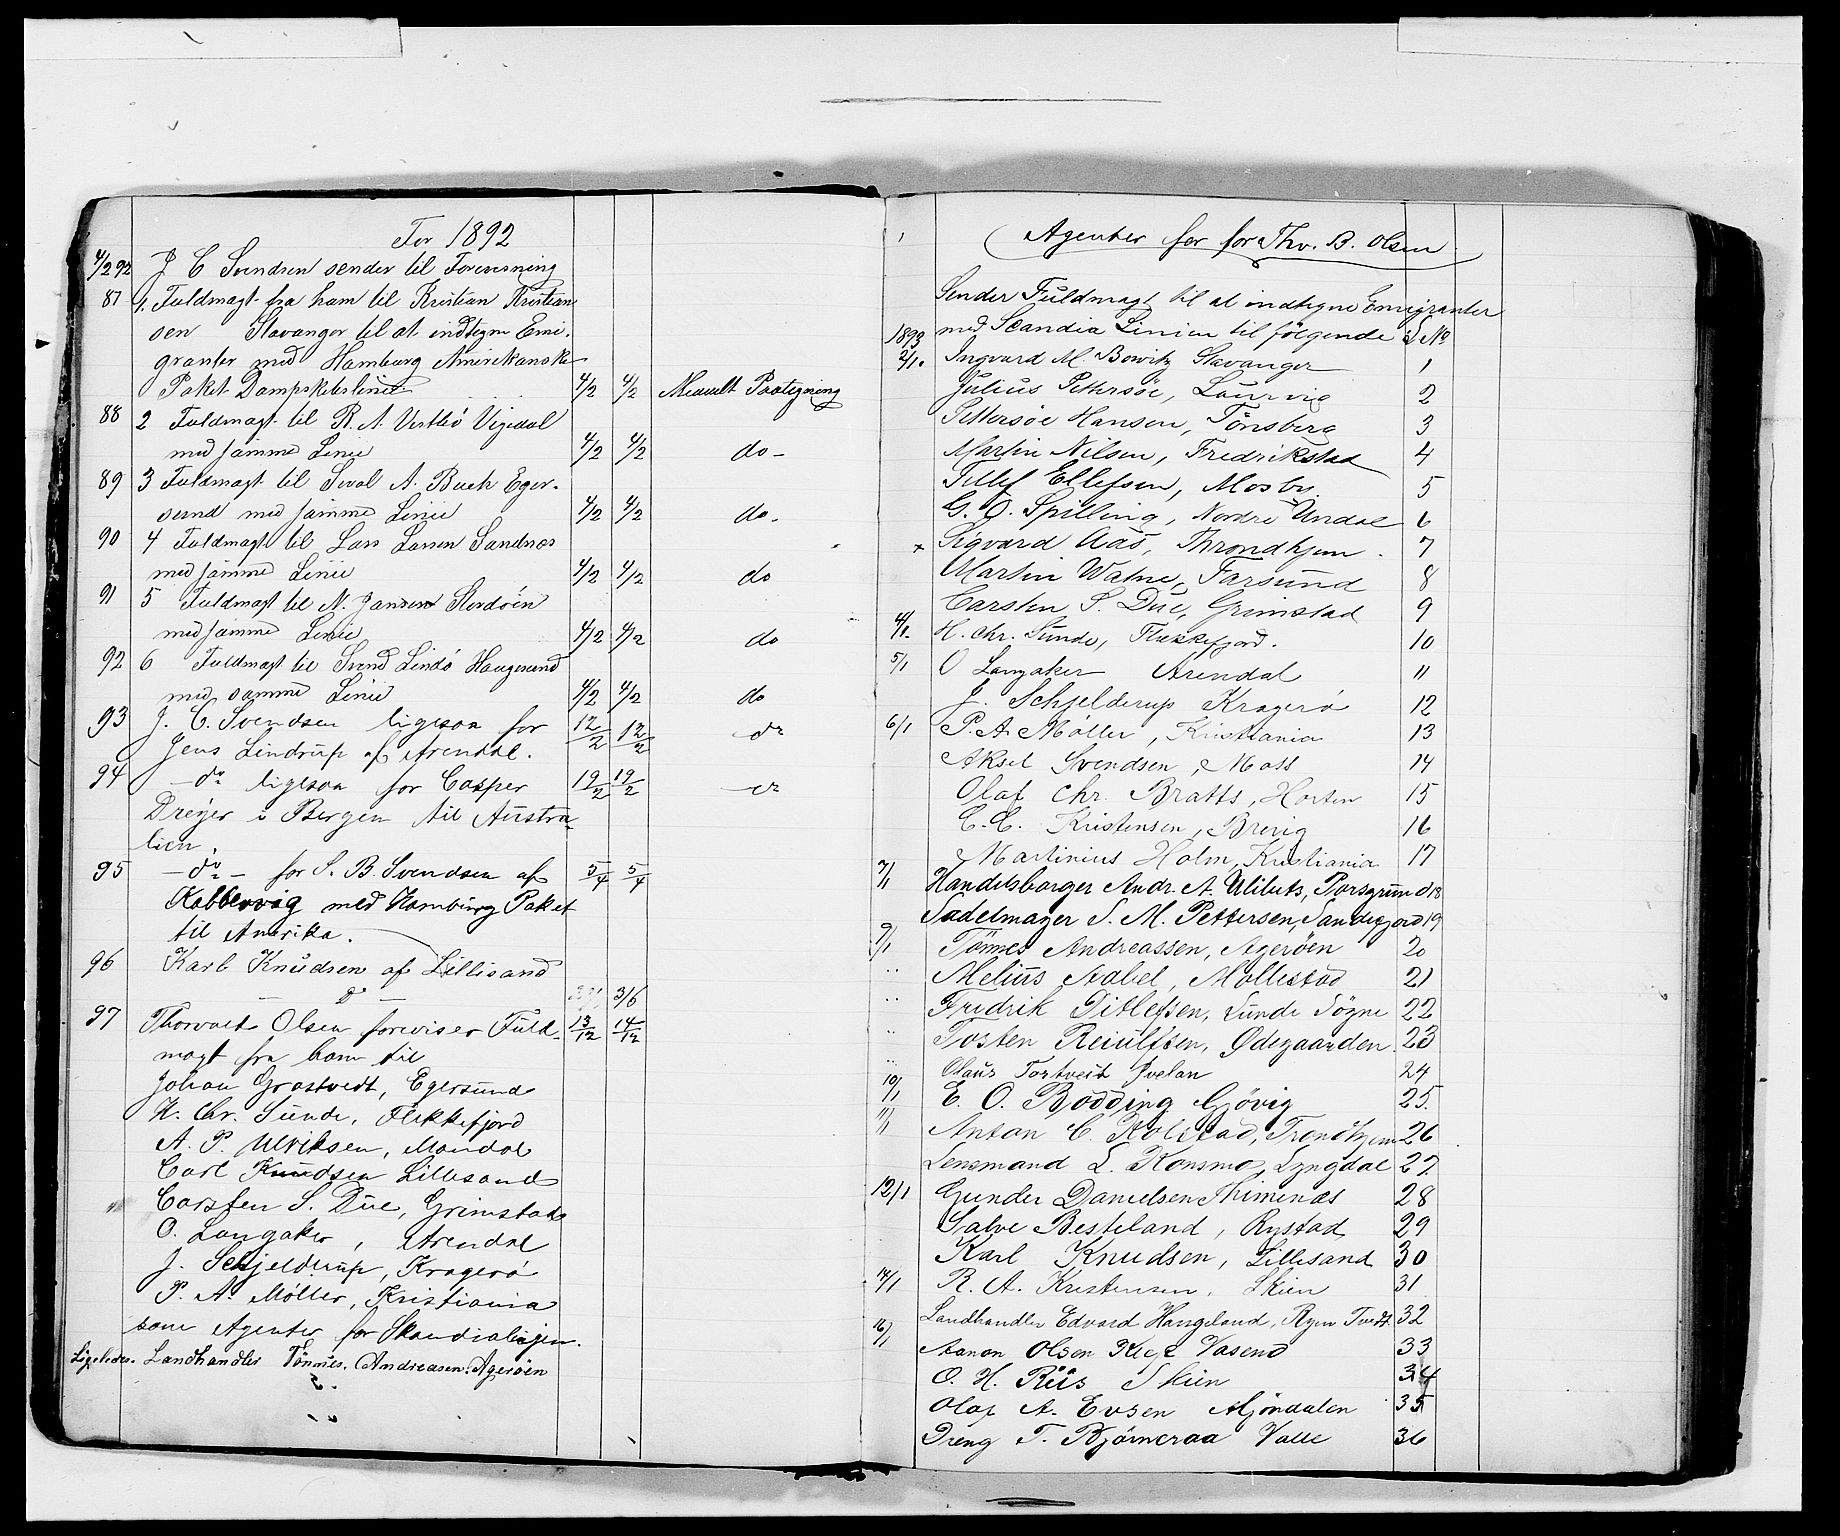 For 1892
4/2 92 J C Svendsen sender til Forevisning
87 1. Fuldmagt fra ham til Kristian Kristian
sen Stavanger til at indtegne Emi-
granter med Hamburg Amerikanske
Paket Dampskibslinie 4/2 4/2 Paategning
88 2 Fuldmagt til R. A. Vestbö Vigedal
med samme Linie 4/2 4/2 do-
89 3 Fuldmagt til Sival A. Buch Eger-
sund med samme Linie 4/2 4/2 do-
90 4 Fuldmagt til Lars Larsen Sandnes
med samme Linie 4/2 4/2 do
91 5 Fuldmagt til N. Jansen Stordöen
med samme Linie 4/2 4/2 do
92 6 Fuldmagt til Svend Lindö Haugesund
med samme Linie 4/2 4/2 do
93 J. C. Svendsen ligesaa for 12/2 12/2 do
Jens Lindrup af Arendal.
94 - do ligesaa for Casper 19/2 19/2 do
Dreyer i Bergen til Austra-
lien
95 - do - for S. B. Svendsen af 5/4 5/4
Kabbervig med Hamburg Paket
til Amerika.
96 Karl Knudsen af Lillisand
- do - 3/6
97 Thorvald Olsen foreviser Fuld- 13/12 14/12
magt fra ham til
Johan Grastvedt, Egersund
H. Chr. Sunde, Flekkefjord
A. P. Ulriksen, Mandal
Carl Knudsen Lillesand
Carsten S. Due, Grimstad
O. Langaker, Arendal
J. Schjelderup, Kragerö
P. A. Möller, Kristiania
som Agenter for Skandialinjen.
Ligeledes. Landhandler Tönnes. Andreasen. Agerøen
Agenter for for Thv. B. Olsen
Sender Fuldmagt til at indtegne Emigranter
1893 med Scandia Linien til følgende: L No
2/1. Ingvard M. Bowitz Stavanger 1
Julius Pettersöe, Laurvig 2
Pettersöe Hansen, Tönsberg 3
Martin Nilsen, Fredrikstad 4
Tellef Ellefsen, Mosby. 5
G. O. Spilling, Nordre Undal 6
x Sigvard Aas, Throndhjem. 7
Martin Watne, Farsund 8
Carsten S. Due, Grimstad 9
4/1. H. Chr. Sunde, Flekkefjord. 10
5/1 O Langaker Arendal 11
J. Schjelderup Kragerö 12
6/1 P. A. Möller, Kristiania 13
Aksel Svendsen, Moss 14
Olaf Chr. Bratts, Horten 15
C. C. Kristensen, Brevig 16
Martinius Holm, Kristiania 17
7/1 Handelsborger Andr. A. Porsgrund 18
Sadelmager S. M. Pettersen, Sandefjord 19
9/1 Tönnes Andreassen, Agerøen 20
.. Melius Aabel, Mollestad 21
.. Fredrik Ditlefsen, Lunde Sögne 22
.. Tosten Reiulfsen, Ødegaarden. 23
.. Olaus Tortveit Iveland 24
10/1 E. O. Bödding Gjövig 25.
11/1 Anton C. Kolstad, Trondhjem 26
Lensmand L. Konsmo, Lyngdal 27
12/1 Gunder Danielsen Thimenes 28
Salve Besteland, Rystad 29
Karl Knudsen, Lillesand 30
14/1 R. A. Kristensen, Skien 31
Landhandler Edvard Haugeland, Tvedt. 32
16/1 Aanon Olsen Vasend 33
O. H. Riis Skien 34
Olaf A. Evsen Mjöndalen 35
Dreng T. Bjömeraa Valle 36